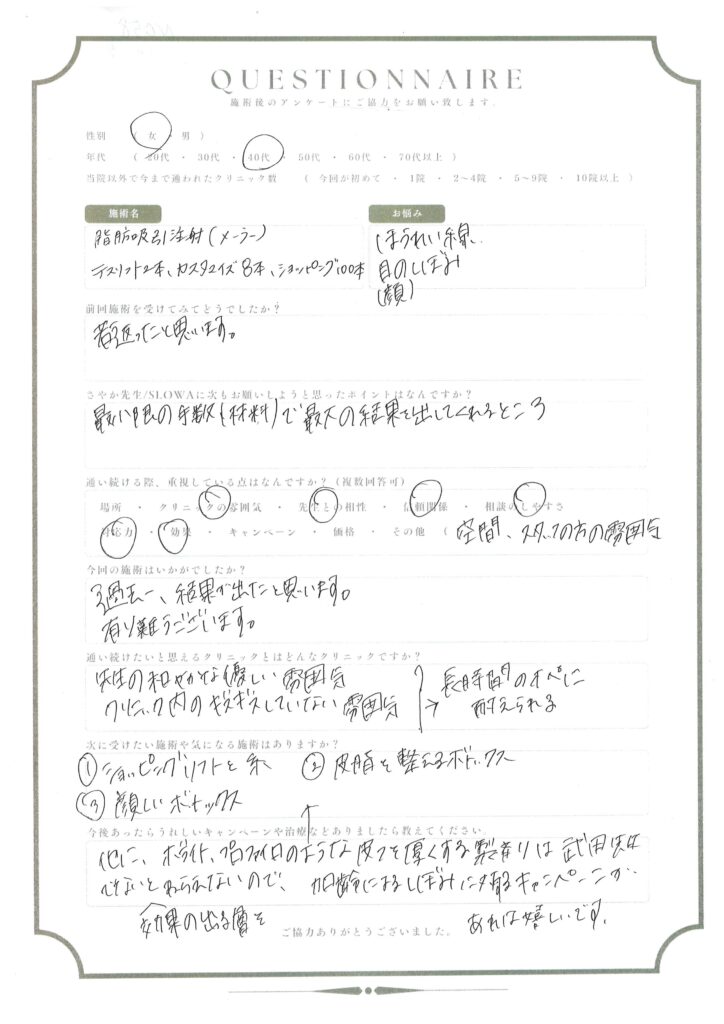 QUESTIONNAIRE
施術後のアンケートにご協力をお願い致します。
性別 ( 女 ・ 男 )
年代 ( 20代 ・ 30代 ・ 40代 ・ 50代 ・ 60代 ・ 70代以上 )
当院以外で今まで通われたクリニック数 ( 今回が初めて ・ 1院 ・ 2〜4院 ・ 5〜9院 ・ 10院以上 )
施術名
脂肪吸引注射(メーラー)
テスリフト2本、カスタマイズ8本、ショッピング100本
お悩み
ほうれい線、
目のしぼみ
(顔)
前回施術を受けてみてどうでしたか?
若返ったと思います。
さやか先生/SLOWAに次もお願いしようと思ったポイントはなんですか?
最小限の手数(材料)で最大の結果を出してくれるところ
通い続ける際、重視している点はなんですか?(複数回答可)
場所 ・ クリニックの雰囲気 ・ 先生との相性 ・ 信頼関係 ・ 相談のしやすさ
対応力 ・ 効果 ・ キャンペーン ・ 価格 ・ その他 ( 空間、スタッフの方の雰囲気
今回の施術はいかがでしたか?
過去一、結果が出たと思います。
有り難うございます。
通い続けたいと思えるクリニックとはどんなクリニックですか?
先生の和やかな優しい雰囲気
クリニック内のギスギスしていない雰囲気
→ 長時間のオペに
耐えられる
次に受けたい施術や気になる施術はありますか?
① ショッピングリフトと糸 ② 皮脂を整えるボトックス
③ 顔しいボトックス
今後あったらうれしいキャンペーンや治療などありましたら教えてください。
他に、ボライト、プロファイロのような皮フを厚くする製剤は武田先生
でないとねらえないので、加齢によるしぼみに対するキャンペーンが
効果の出る層を
あれば嬉しいです。
ご協力ありがとうございました。